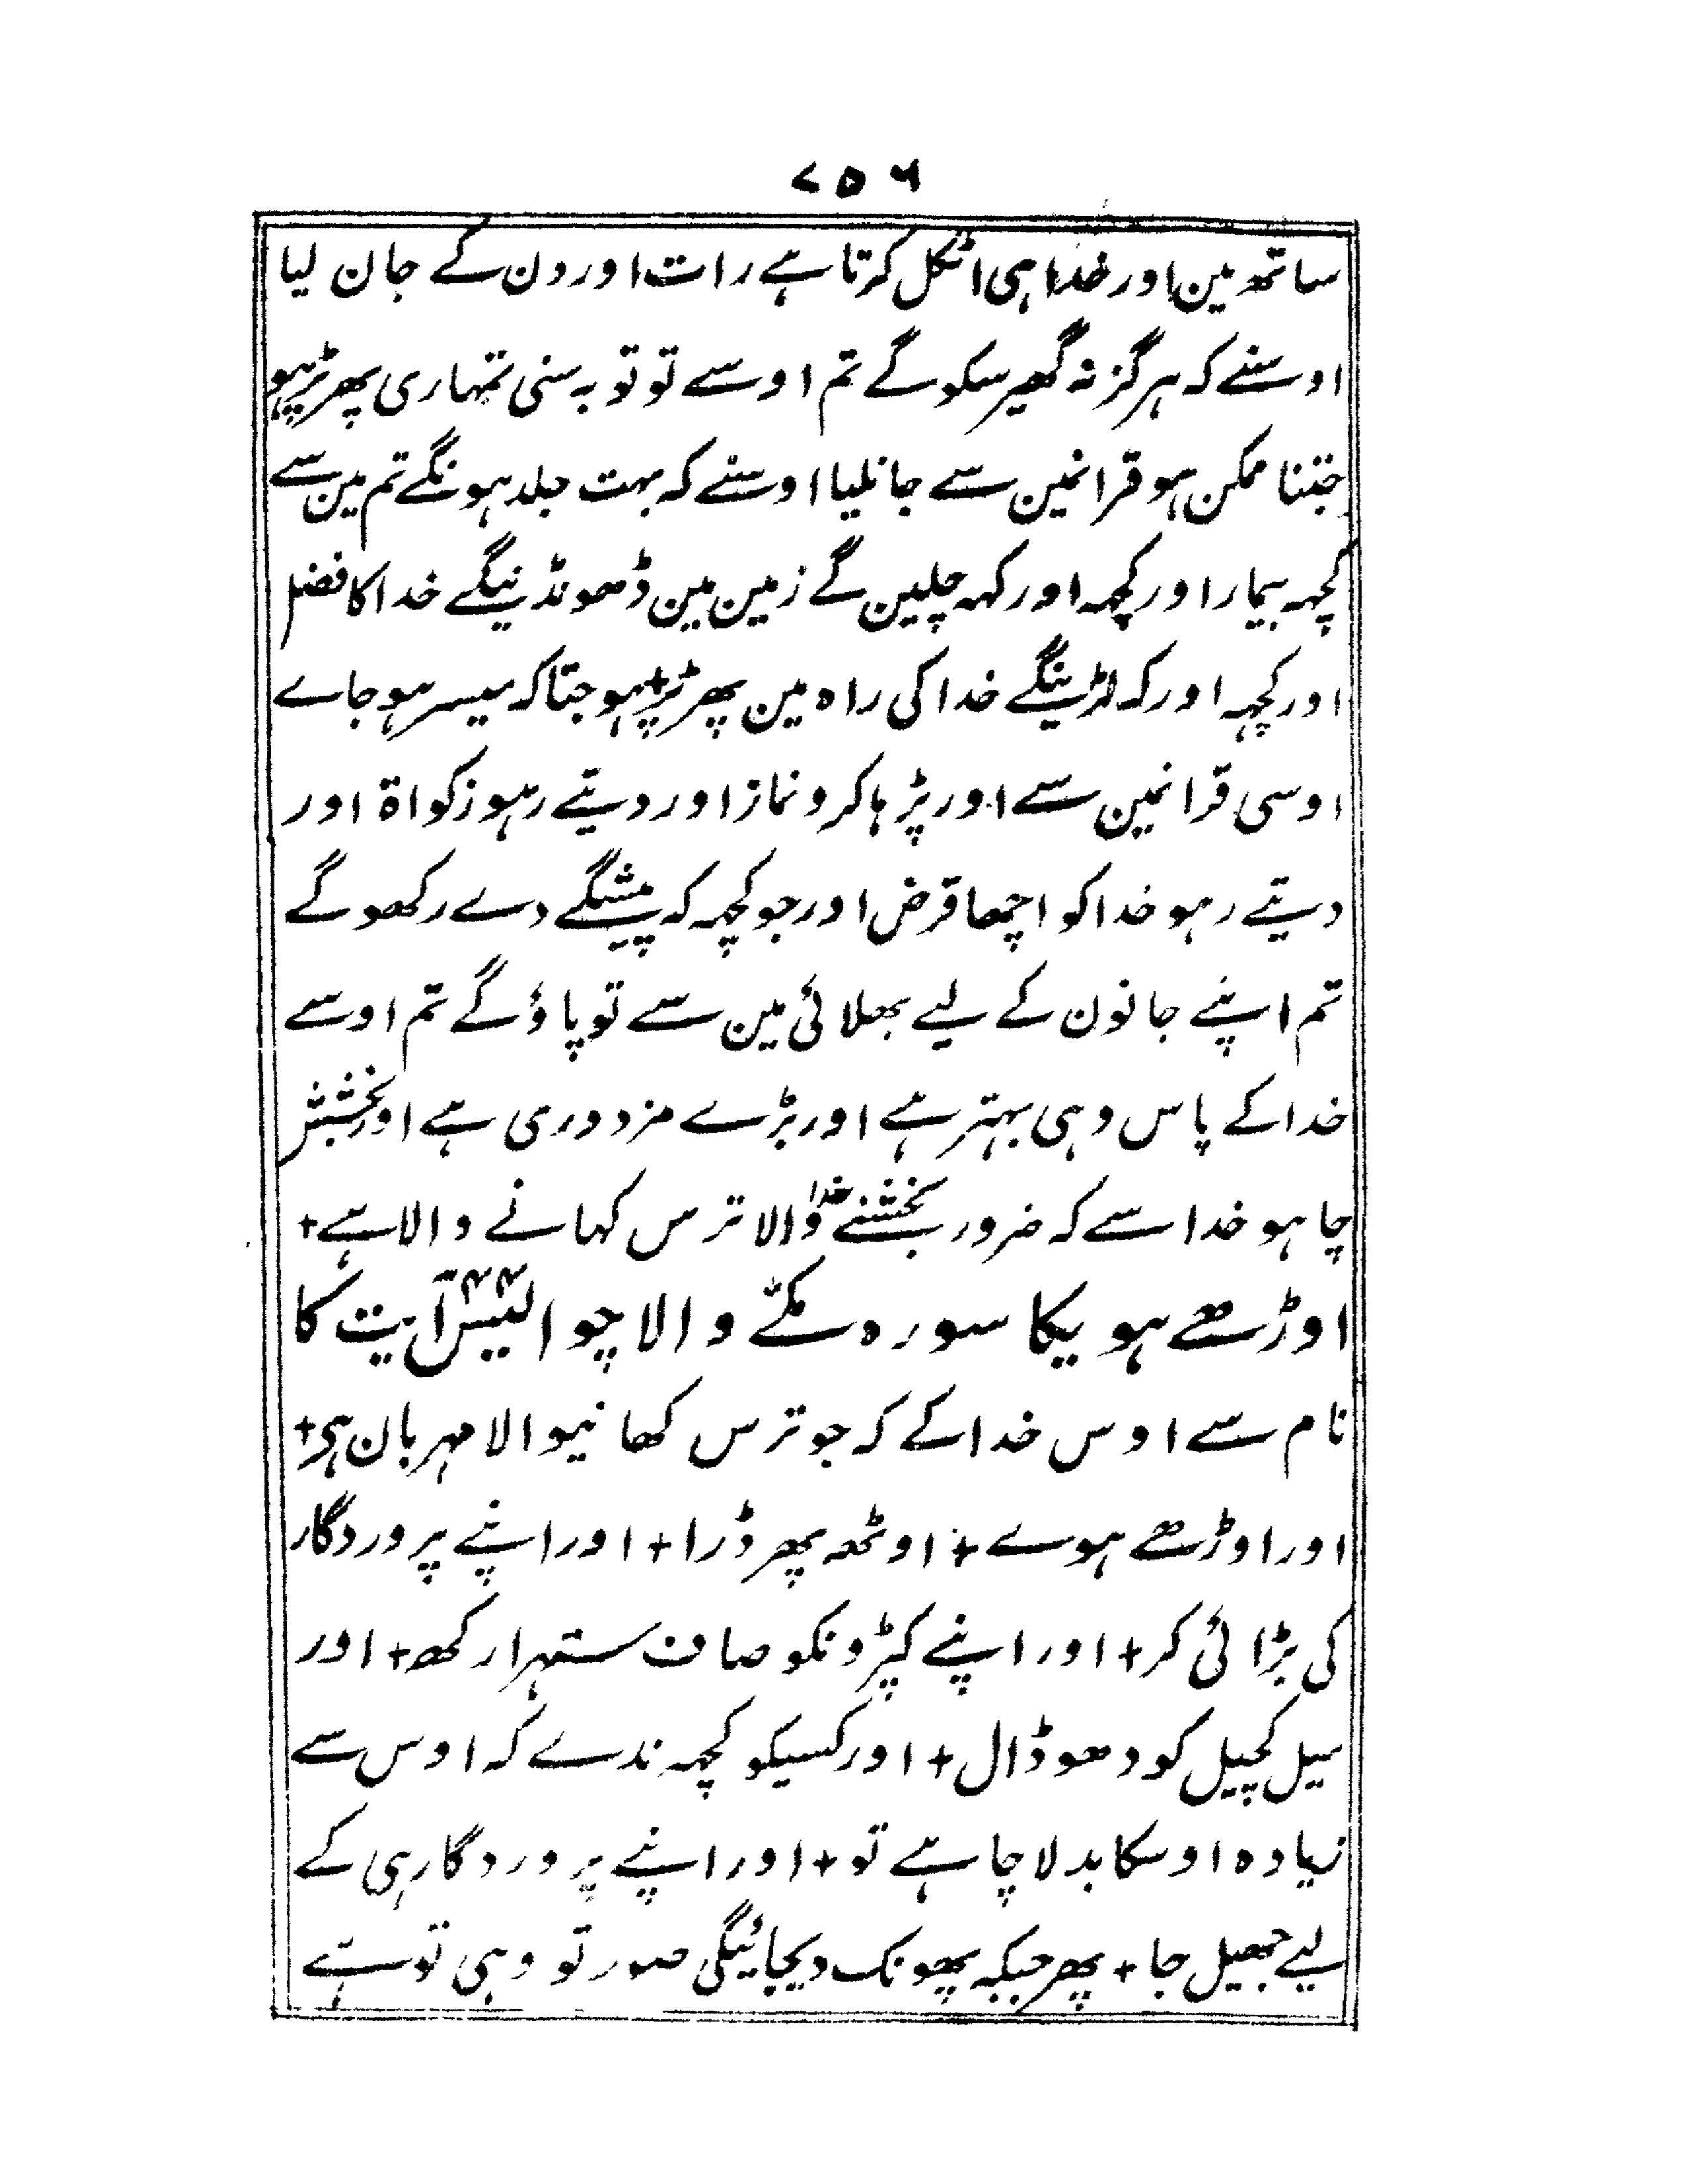 ۷۵۶
ساتھ مین اور خدا ہی اٹکل کرتا ہے رات اور دن کے جان لیا
اوسنے کہ ہرگز نہ گھیر سکو گے تم اوسے تو توبہ سنی تمہاری پھر پڑہو
جتنا ممکن ہو قرانمین سے جانلیا اوسنے کہ بہت جلد ہونگے تم مین سے
کچہہ بیمار اور کچہہ اور کہہ چلین گے زمین مین ڈھونڈینگے خدا کا فضل
اور کچہہ اور کہ لڑینگے خدا کی راہ مین پھر پڑہو جتنا کہ میسر ہو جاے
اوسی قرانمین سے اور پڑہا کرو نماز اور دیتے رہو زکواۃ اور
دیتے رہو خدا کو اچھا قرض اور جو کچہہ کہ پیشگے دے رکھو گے
تم اپنے جانون کے لیے بھلائی مین سے تو پاؤ گے تم اوسے
خدا کے پاس وہی بہتر ہے اور بڑے مزدوری ہے اور بخشش
چاہو خدا سے کہ ضرور خدا بخشنے والا و ترس کہانے والا ہے +
اوڑھے ہویکا سورہ مکّے والا چوالیس ۴۴ آیت کا
نام سے اوس خدا کے کہ جو ترس کھانیوالا مہربان ہی +
اور اوڑھے ہوے + اوٹھہ پھر ڈرا + اور اپنے پروردگار
کی بڑائی کر + اور اپنے کپڑونکو صاف ستہرا رکھ + اور
میل کچیل کو دھو ڈال + اور کسیکو کچہہ ندے کہ اوس سے
زیادہ اوسکا بدلا چاہے تو + اور اپنے پروردگار ہی کے
لیے جھیل جا + پھر جبکہ پھونک دیجائیگی صور تو وہی تو ہے